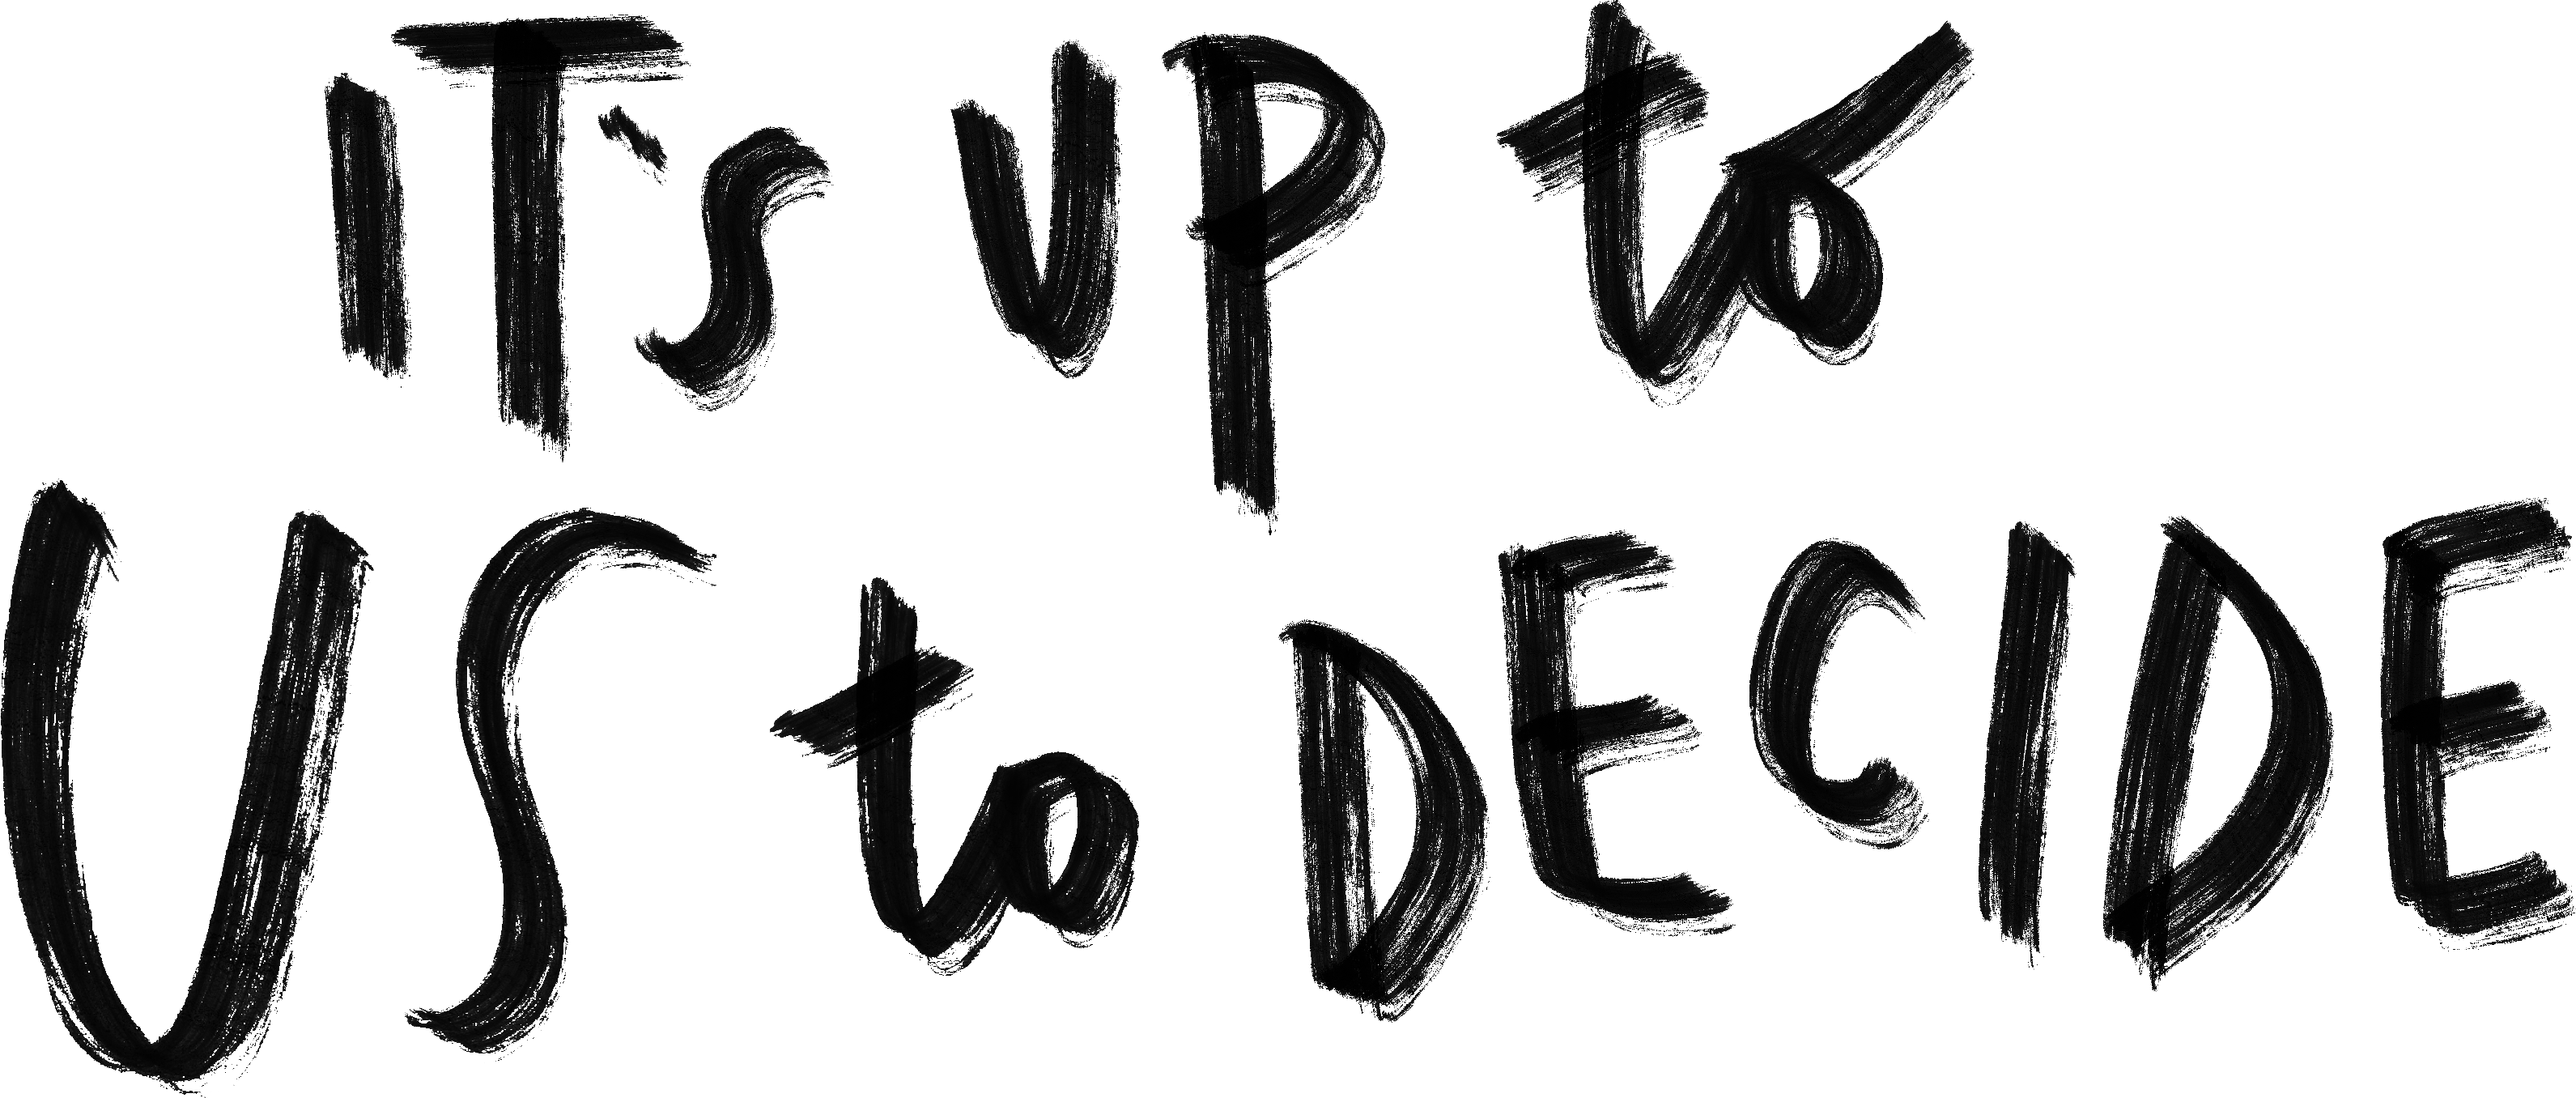 IT's UP to
US to DECIDE